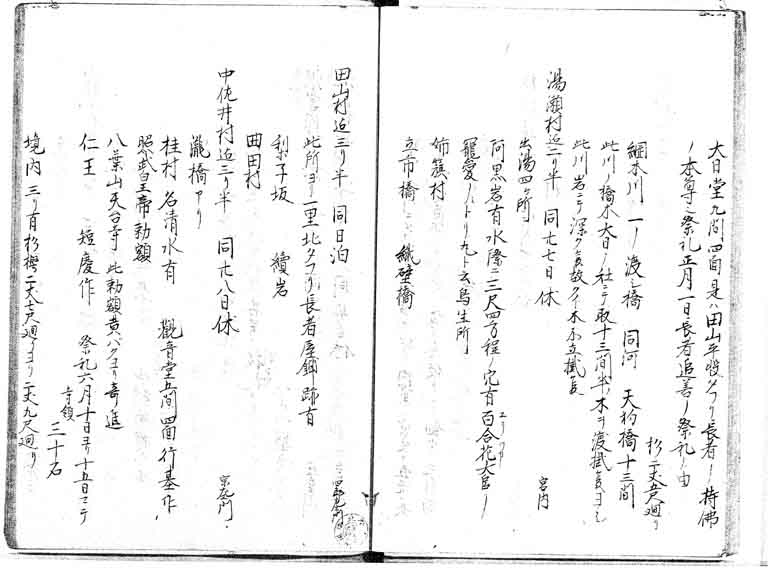 大日堂九間四面是ハ田山平間タフリ長者ノ持佛
ノ本尊也祭礼正月一日長者追善ノ祭礼ノ由
杉二丈五尺廻リ
綱木川 一ノ渡シ橋 同河 天狗橋十三間
此川ノ橋木大日ノ社ニテ取十三間半ノ木ヲ渡掛
此川岩ニテ深ク有故クイ木不立掛
湯瀬村迄二り半 同廿七日休 宮内
出湯四ケ所
阿黒岩有水際ニ三尺四方程ノ穴有百合花大臣ノ
ユリワカ
寵愛ノハトリ丸ト云鳥生所
佈籏村
立市橋 織壁橋
田山村迄三り半 同日泊
此所ヨリ一里北タフリ長者屋鋪跡有
梨子坂 續岩
曲田村
中佐井村迄三り半 同廿八日休
瀧橋アリ
桂村 名清水有 觀音堂五間四面行基作
昭武皇帝勅額
八葉山天台寺 此勅額黄バクヨリ寄進
仁王 短慶作 祭礼六月十日ヨリ十五日マテ
寺領 三十石
境内 三り有杉樅二丈八尺廻リヨリ二丈九尺廻リ